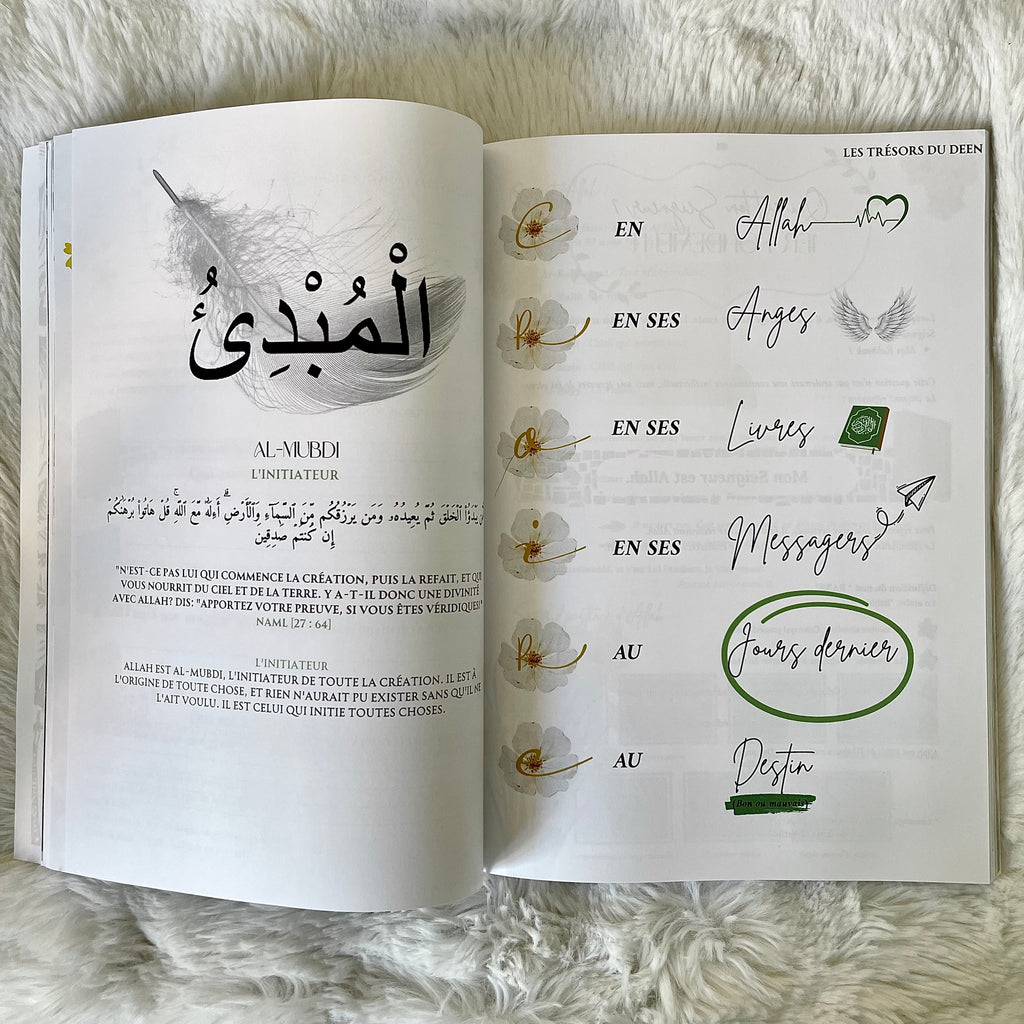 الْمُبْدِئُ
AL-MUBDI
L'INITIATEUR
يَبْدَؤُا۟ ٱلْخَلْقَ ثُمَّ يُعِيدُهُۥ وَمَن يَرْزُقُكُم مِّنَ ٱلسَّمَآءِ وَٱلْأَرْضِ ۗ أَءِلَٰهٌ مَّعَ ٱللَّهِ ۚ قُلْ هَاتُوا۟ بُرْهَٰنَكُمْ
إِن كُنتُمْ صَٰدِقِينَ
"N'EST-CE PAS LUI QUI COMMENCE LA CRÉATION, PUIS LA REFAIT, ET QUI
VOUS NOURRIT DU CIEL ET DE LA TERRE. Y A-T-IL DONC UNE DIVINITÉ
AVEC ALLAH? DIS: "APPORTEZ VOTRE PREUVE, SI VOUS ÊTES VÉRIDIQUES!"
NAML [27 : 64]
L'INITIATEUR
ALLAH EST AL-MUBDI, L'INITIATEUR DE TOUTE LA CRÉATION. IL EST À
L'ORIGINE DE TOUTE CHOSE, ET RIEN N'AURAIT PU EXISTER SANS QU'IL NE
L'AIT VOULU. IL EST CELUI QUI INITIE TOUTES CHOSES.
LES TRÉSORS DU DEEN
C EN Allah
R EN SES Anges
O EN SES Livres
i EN SES Messagers
R AU Jours dernier
E AU Destin
(Bon ou mauvais)